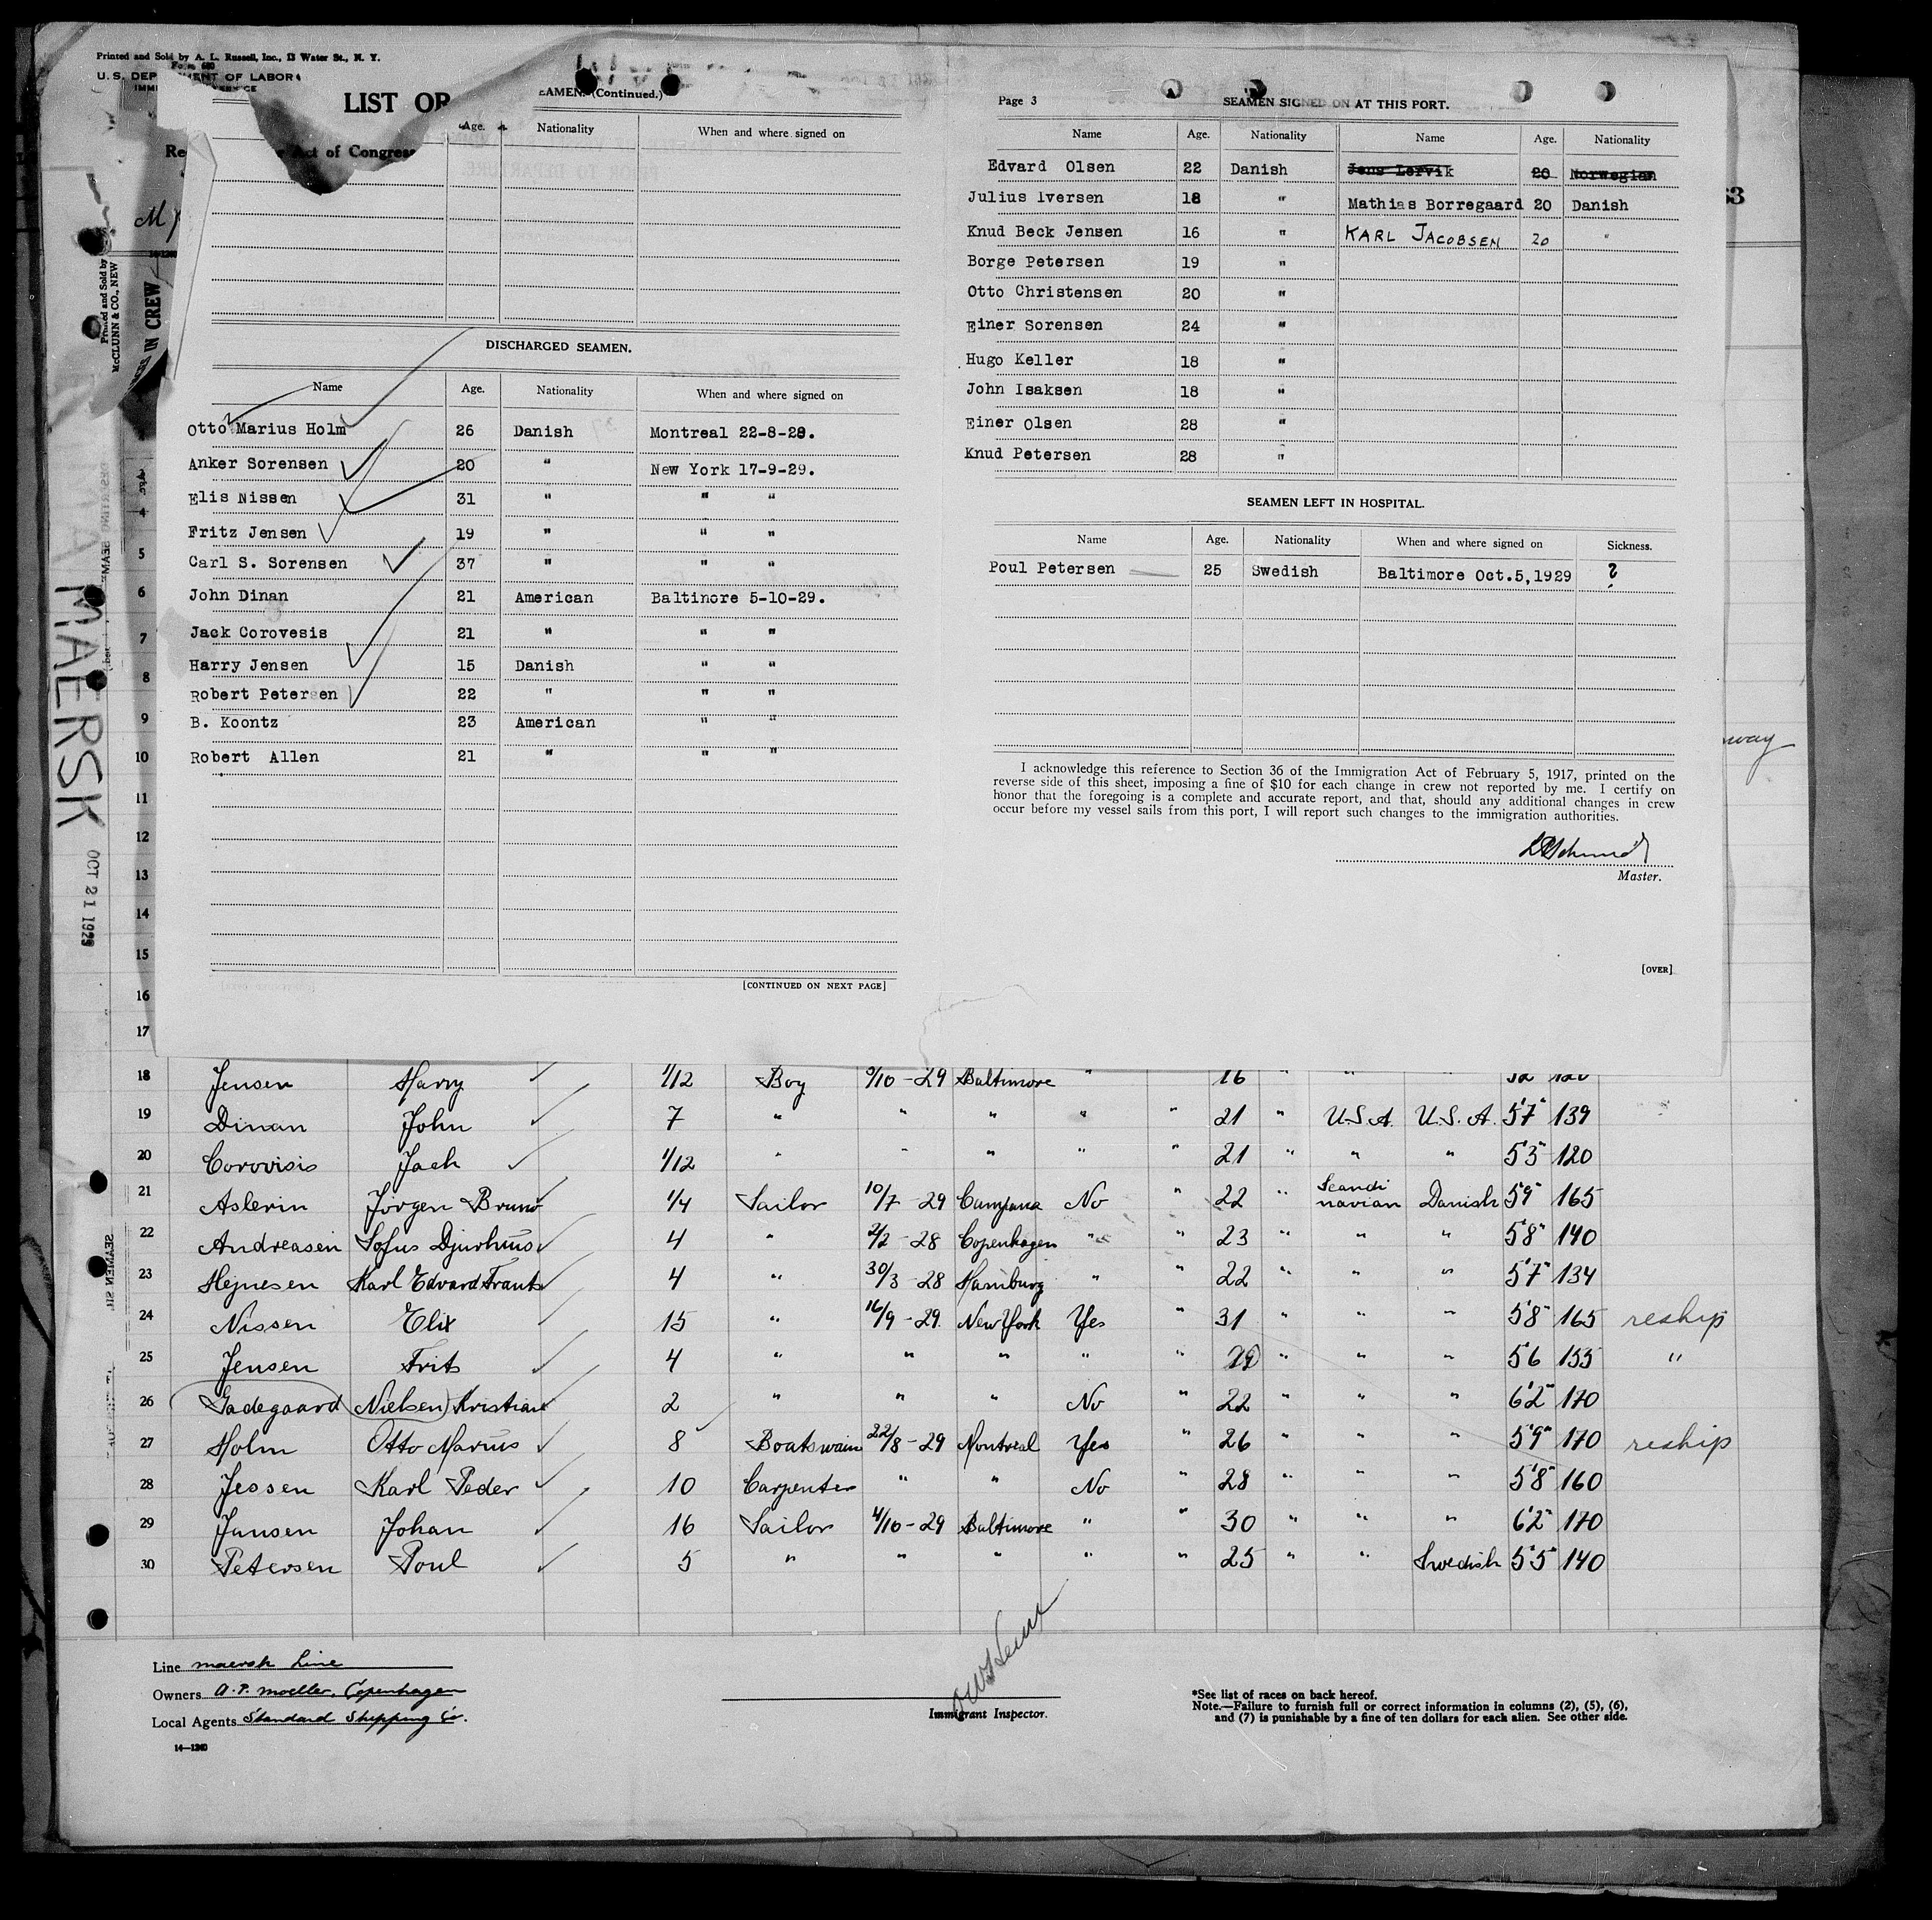 Printed and Sold by A. L. Russell, Inc., 13 Water St., N. Y.
Form 680
U. S. DEP MENT OF LABOR
LIST OR
Act of Congress
EAMEN. (Continued.)
Age. Nationality When and where signed on
DISCHARGED SEAMEN.
Name Age. Nationality When and where signed on
Otto Marius Holm 26 Danish Montreal 22-8-28.
Anker Sorensen 20 " New York 17-9-29.
Elis Nissen 31 " " "
Fritz Jensen 19 " " "
Carl S. Sorensen 37 " " "
John Dinan 21 American Baltinore 5-10-29.
Jack Corovesis 21 " " "
Harry Jensen 15 Danish " "
Robert Petersen 22 " " "
B. Koontz 23 American " "
Robert Allen 21 " " "
[CONTINUED ON NEXT PAGE]
Page 3
SEAMEN SIGNED ON AT THIS PORT.
Name Age. Nationality Name Age. Nationality
Edvard Olsen 22 Danish Jens Lervik 20 Norwegian
Julius Iversen 18 " Mathias Borregaard 20 Danish
Knud Beck Jensen 16 " KARL JACOBSEN 20 "
Borge Petersen 19 "
Otto Christensen 20 "
Einer Sorensen 24 "
Hugo Keller 18 "
John Isaksen 18 "
Einer Olsen 28 "
Knud Petersen 28 "
SEAMEN LEFT IN HOSPITAL.
Name Age. Nationality When and where signed on Sickness.
Poul Petersen 25 Swedish Baltimore Oct.5,1929 ?
I acknowledge this reference to Section 36 of the Immigration Act of February 5, 1917, printed on the
reverse side of this sheet, imposing a fine of $10 for each change in crew not reported by me. I certify on
honor that the foregoing is a complete and accurate report, and that, should any additional changes in crew
occur before my vessel sails from this port, I will report such changes to the immigration authorities.
Master.
[OVER]
Printed and Sold by
McCLUNN & CO., NEW
IN CREW
MAERSK
OCT 21 1929
4
5
6
7
8
9
10
11
12
13
14
15
16
17
18 Jensen Harry 1/12 Boy 5/10-29 Baltimore " 16 " " "
19 Dinan John 7 " " " " " 21 " U.S.A. U.S.A. 5'7" 139
20 Corovisis Jack 1/12 " " " " " 21 " " " 5'3" 120
21 Aslerin Jörgen Bruno 1/4 Sailor 10/7 29 Campana No " 22 " Scandinavian Danish 5'9" 165
22 Andreasen Sofus Djurhuus 4 " 2/2-28 Copenhagen " " 23 " " " 5'8" 140
23 Hejnesen Karl Edvard Frants 4 " 30/3-28 Hamburg " " 22 " " " 5'7" 134
24 Nissen Elix 15 " 16/9-29 New York Yes " 31 " " " 5'8" 165 reship
25 Jensen Frits 4 " " " " " " " " 5'6 155 "
26 Gadegaard Nielsen Kristian 2 " " " No " 22 " " " 6'2" 170
27 Holm Otto Marius 8 Boatswain 22/8-29 Montreal Yes " 26 " " " 5'9" 170 reship
28 Jessen Karl Peder 10 Carpenter " " No " 28 " " " 5'8" 160
29 Jansen Johan 16 Sailor 4/10-29 Baltimore " " 30 " " " 6'2" 170
30 Petersen Poul 5 " " " " " 25 " " Swedish 5'5" 140
Line Maersk Line
Owners A. P. Moeller, Copenhagen
Local Agents Standard Shipping Co.
14—1240
Immigrant Inspector.
*See list of races on back hereof.
Note.—Failure to furnish full or correct information in columns (2), (5), (6),
and (7) is punishable by a fine of ten dollars for each alien. See other side.